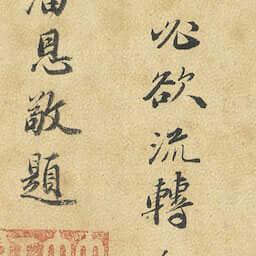 必欲流轉
息敬題